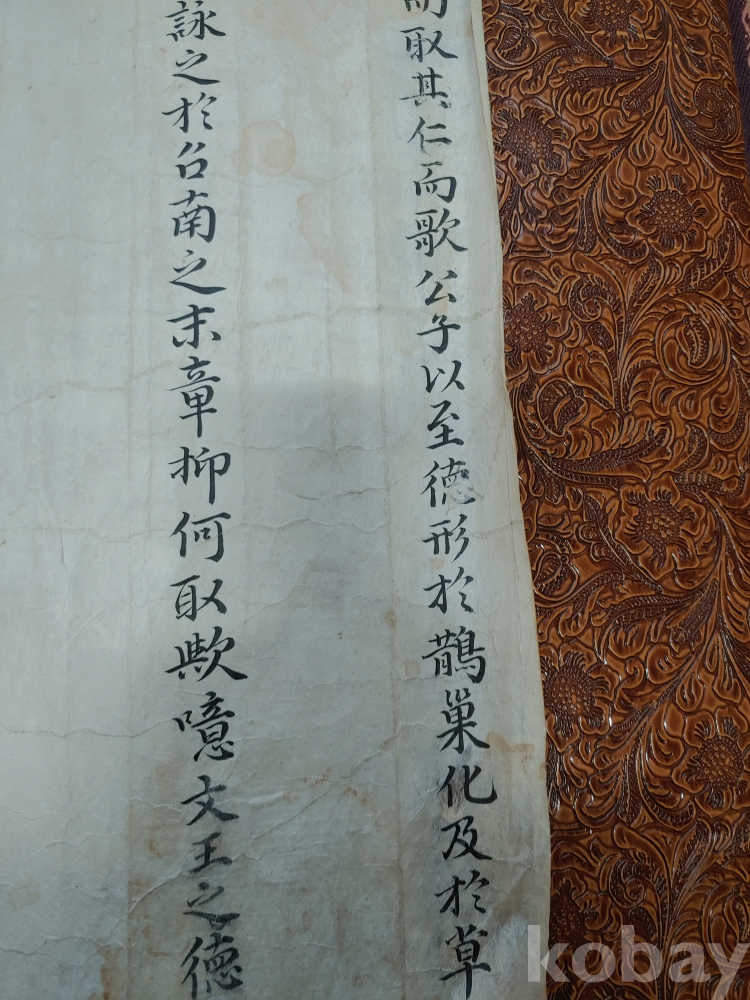 而取其仁而歌公子以至德形於鵲巢化及於草
詠之於召南之末章抑何取歟噫文王之德
kobay